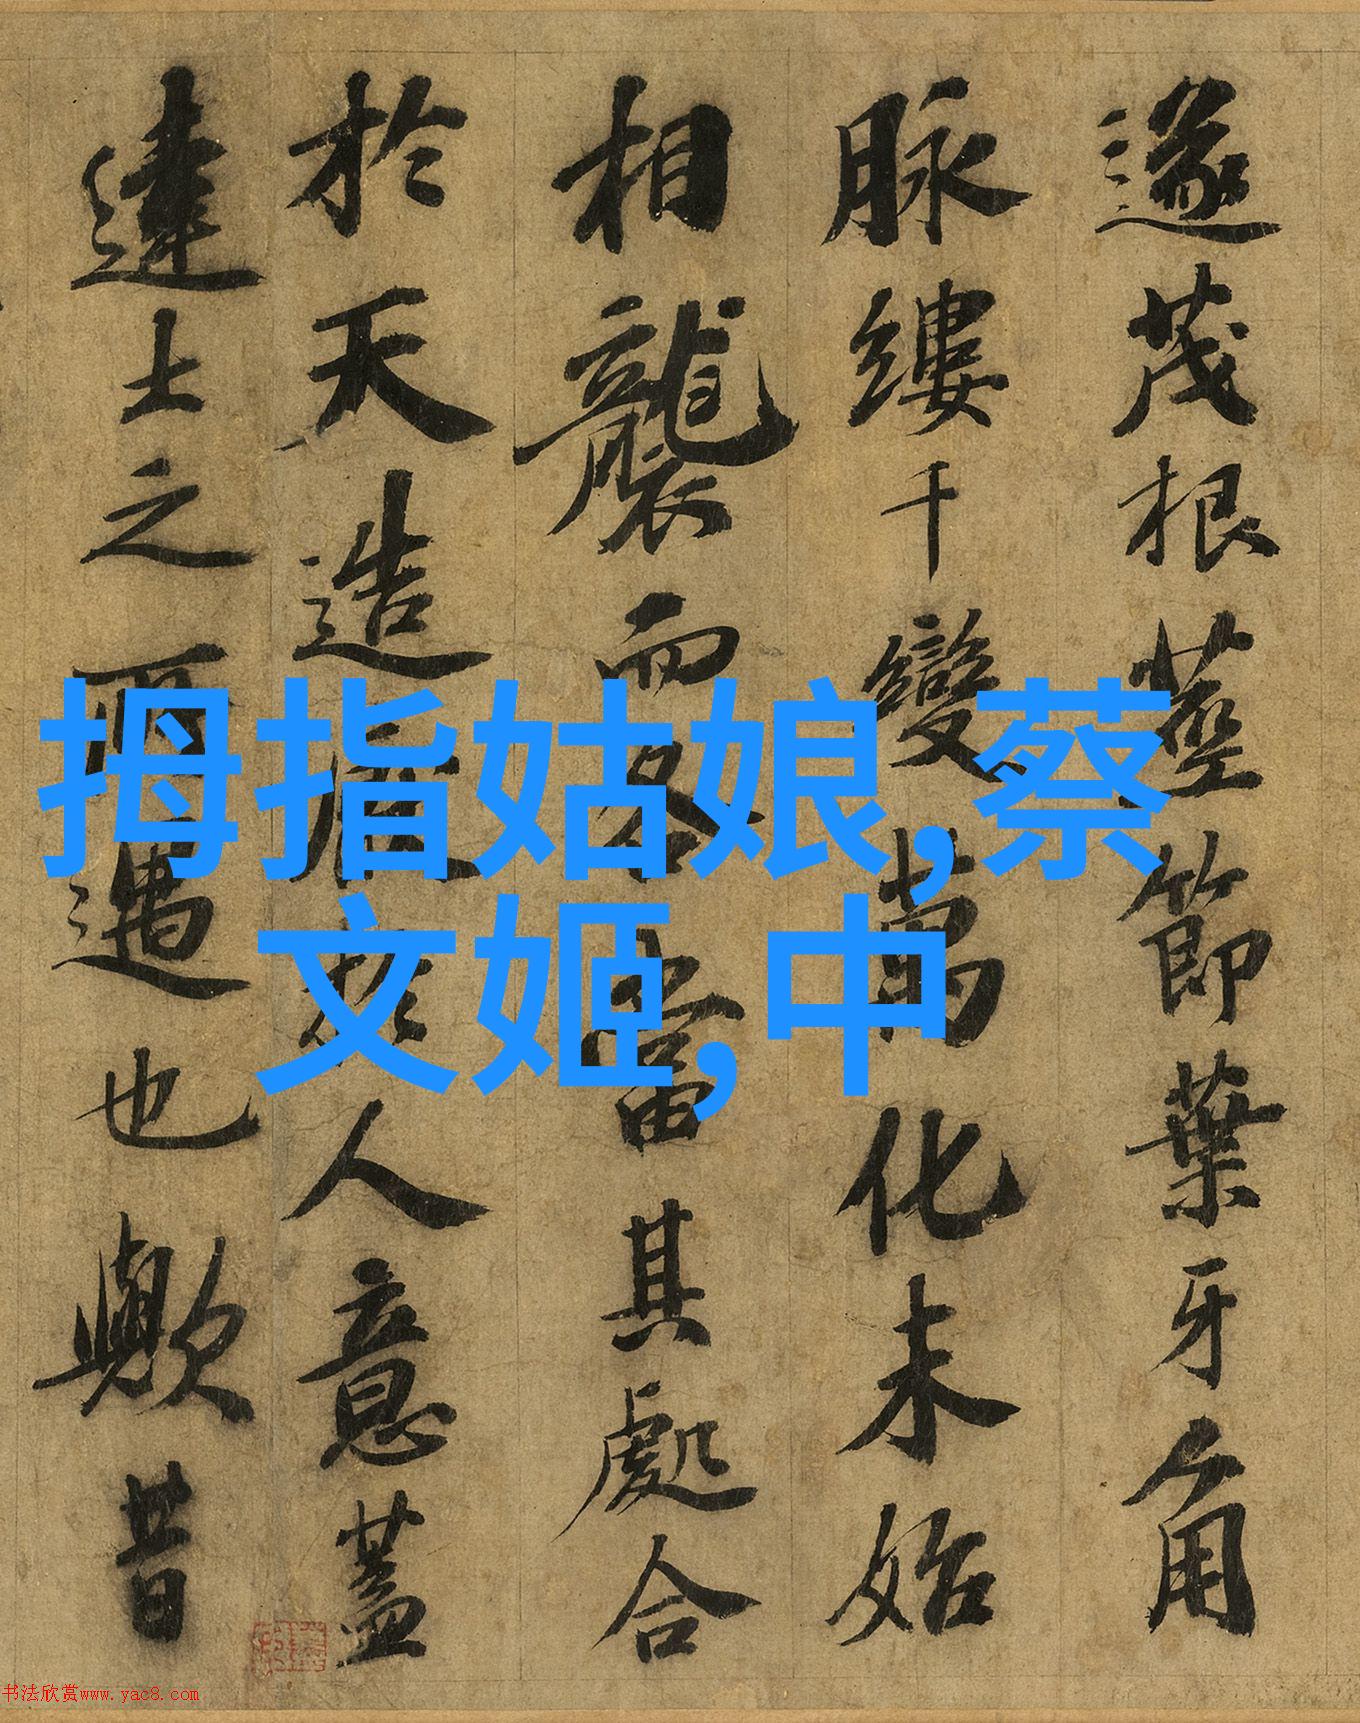 遂茂根莖節葉牙角
脉縷千變萬化未始
相襲而各當其處合
於天造厭於人意蓋
達士之所遇也歟昔
拇指姑娘,蔡
文姬,中
书法欣赏www.yac8.com